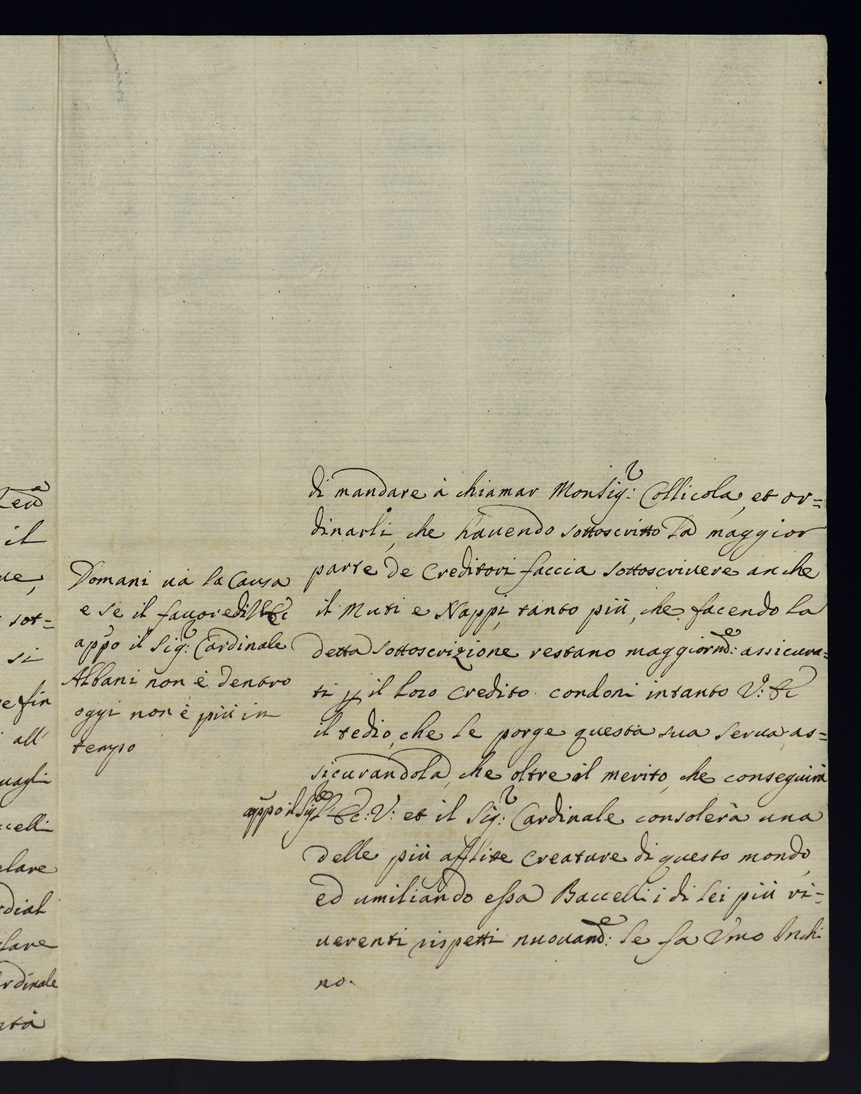 Domani uà la Causa
e se il fauore di V: Ec:
appo il Sig:r Cardinale
Albani non è dentro
oggi non è più in
tempo
di mandare à chiamar Monsig:r Collicola, et or=
dinarli, che hauendo sottoscritto la maggior
parte de Creditori faccia sottoscriuere anche
il Muti e Nappi, tanto più, che facendo la
detta sottoscrizione restano maggiorm:e assicura=
ti p il loro credito. condoni intanto V: Ec
il tedio, che le porge questa sua serua, as=
sicurandola, che oltre il merito, che conseguirà
appo il Sig:e
V: et il Sig:r Cardinale consolerà una
delle più afflitte creature di questo mondo
ed umiliando essa Baccelli i di lei più ri=
uerenti rispetti nuouam:e le fa Vmo Inchi
no.
il
sot=
si
fin
all'
uagli
ccelli
clare
rdial
lare
ardinale